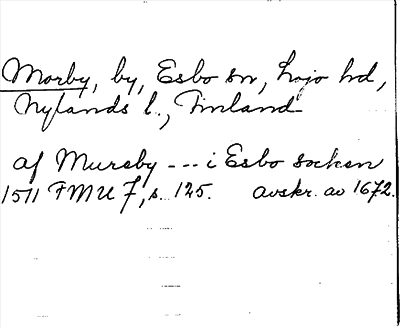 Morby, by, Esbo sn, Lojo hd,
Nylands l., Finland
af Mursby --- i Esbo socken
1511 FMU 7, s. 125. avskr. av 1672.